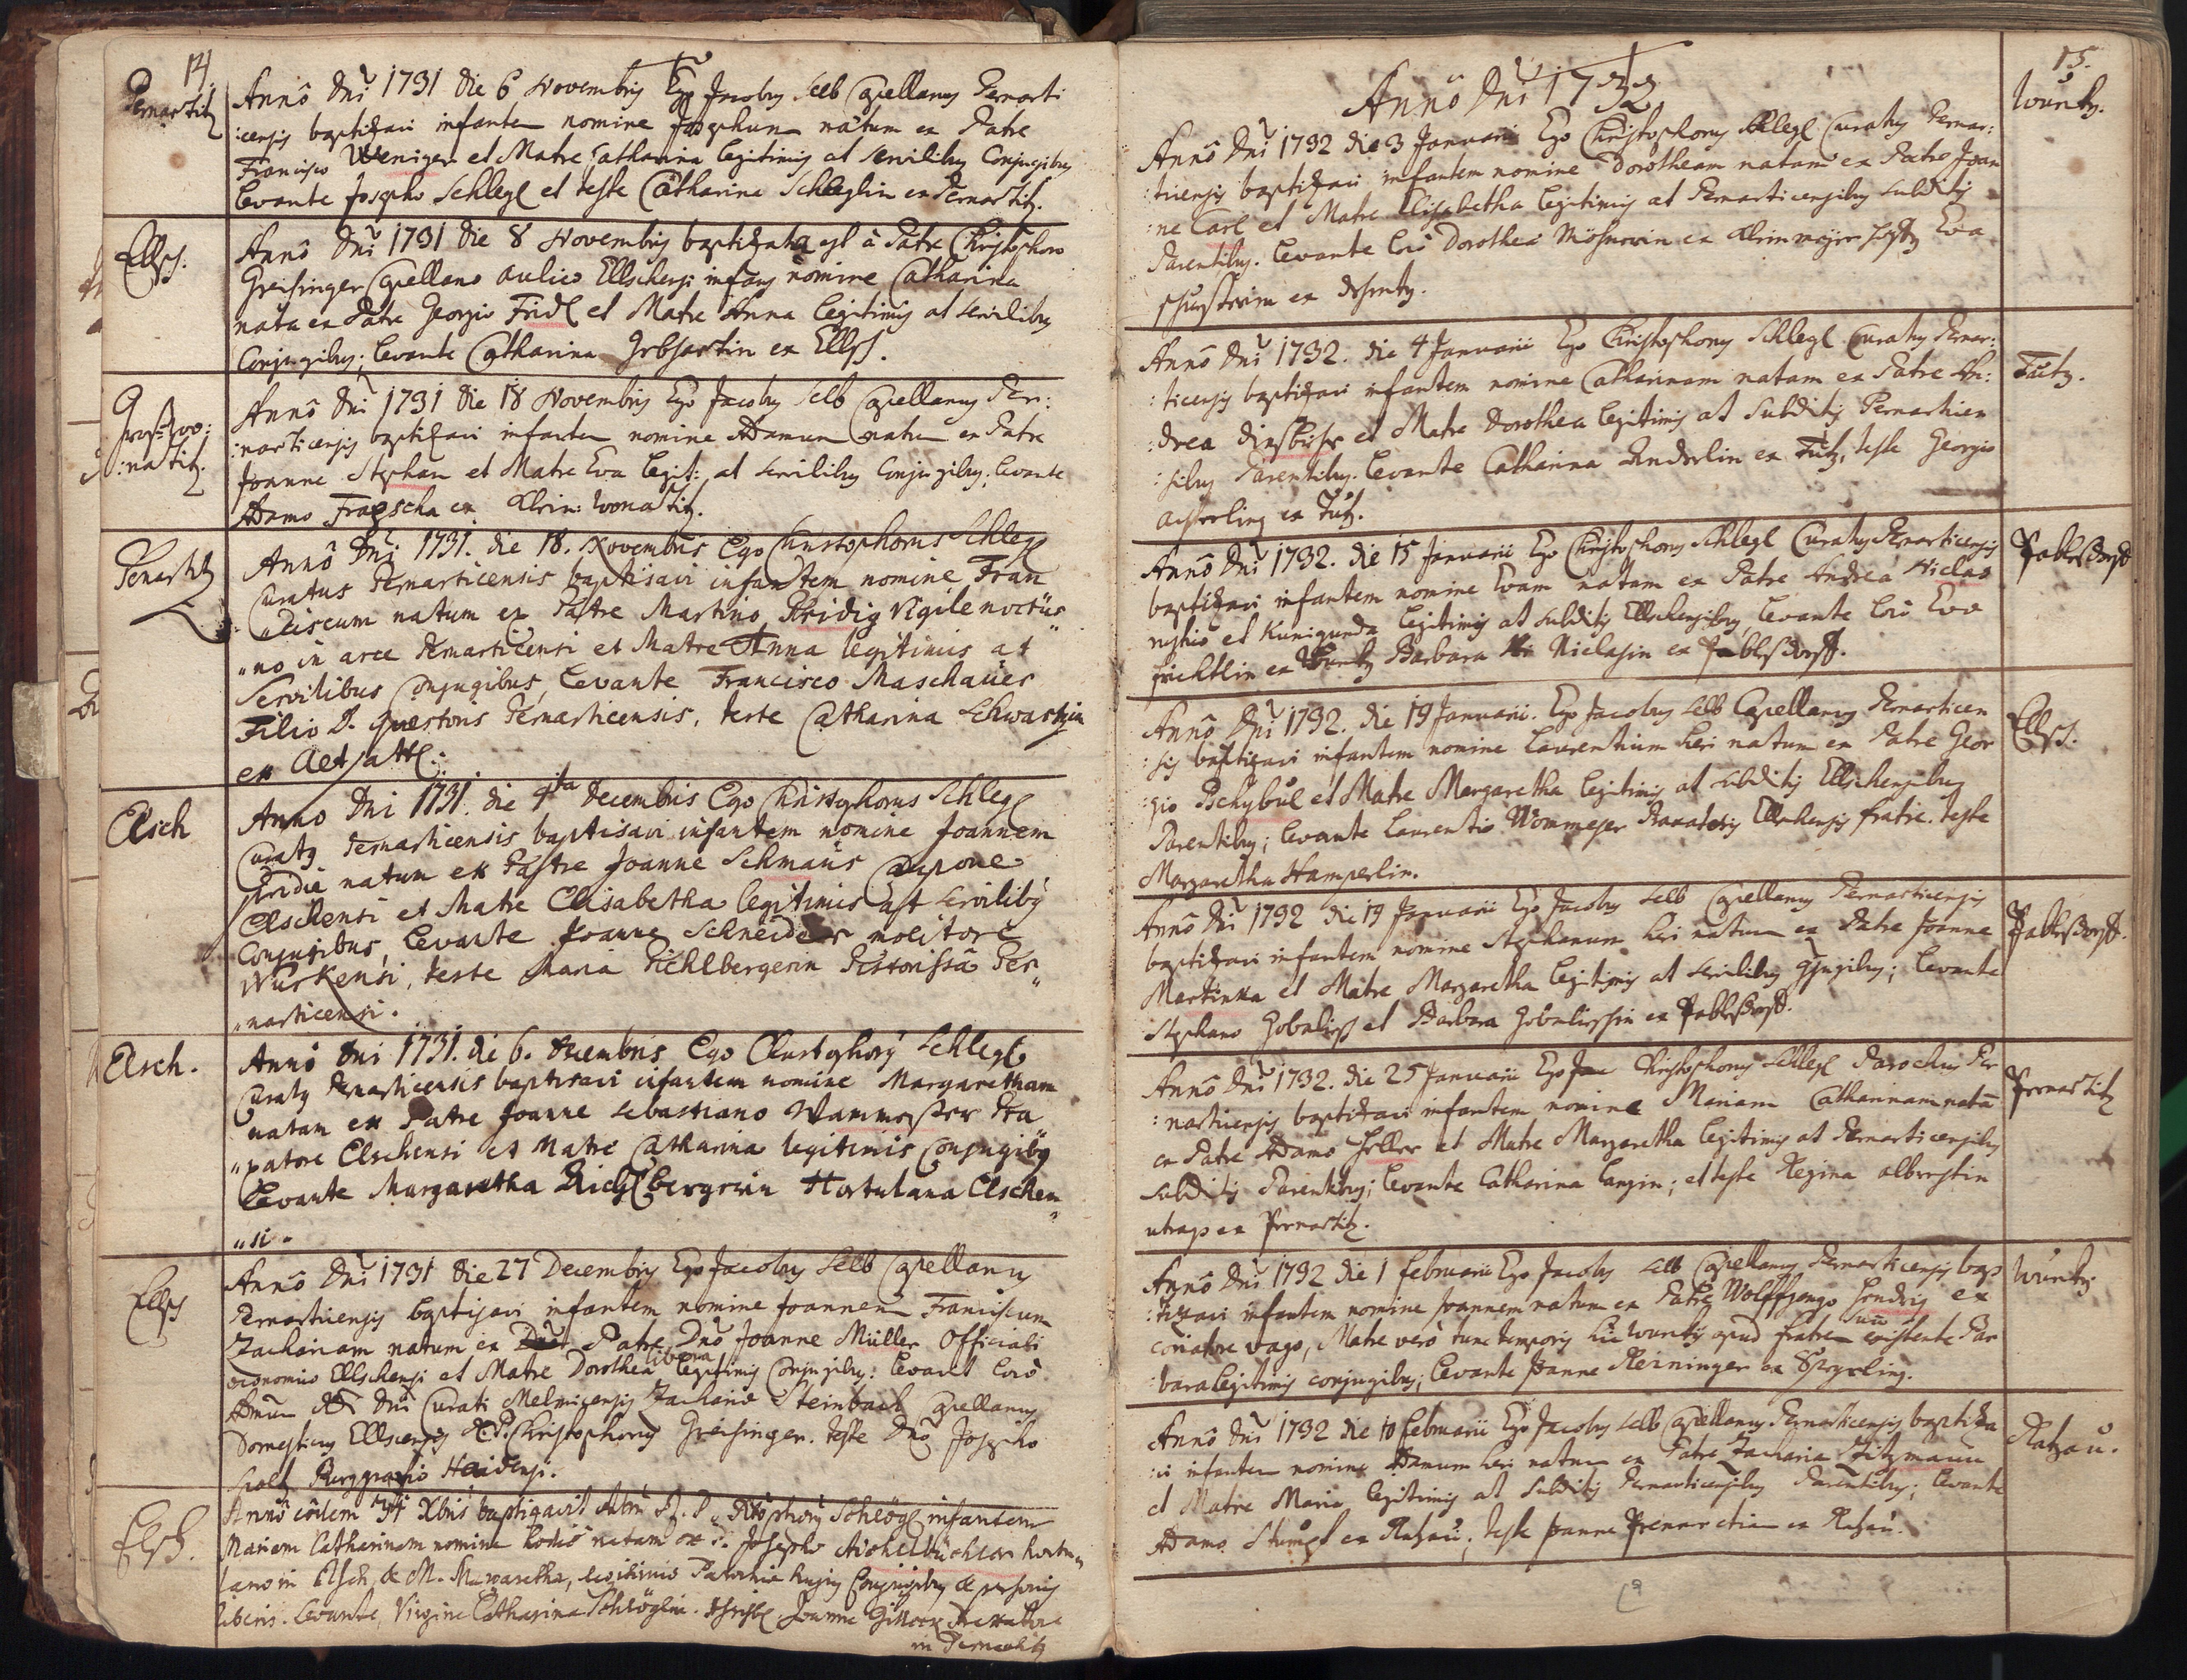 14
Pernartitz
Annô Dni 1731 die 6 Novembris Ego Jacobus Selb Capellanus Pernarti
:censis baptizavi infantem nomine Josephum natum ex Patre
Francisco Weniger et Matre Catharina legitimis at servilibus Conjugibus
levante Josepho Schlegl et teste Catharina Schleglin ex Pernartitz.
Ellsch.
Annô Dni 1731 die 8 Novembris baptizata est à Patre Christophoro
Greisinger Capellano aulico Ellschensi infans nomine Catharina
nata ex Patre Georgio Fridl et Matre Anna legitimis at servilibus
Conjugibus; levante Catharina ex Ellsch.
:natitz.
Annô Dni 1731 die 18 Novembris Ego Jacobus Selb Capellanus Per:
:narticensis baptizavi infantem nomine Adamum natum ex Patre
Joanne Stephan et Matre Eva legit: at servilibus Conjugibus; levante
Adamo Fragscha ex Klein: wonatitz.
Pernartitz
Annô Dni 1731. die 18. Novembris Ego Christophorus Schlegl
Curatus Pernarticensis baptisavi infantem nomine Fran
"ciscum natum ex Patre Martino Pridig Vigile noctur
"no in arce Pernarticensi et Matre Anna legitimis at
Servilibus Conjugibus, levante Francisco Maschauer
Filio D. Quæstoris Pernarticensis, teste Catharina Schwartzin
ex
Elsch
Anno Dni 1731. die 4ta Decembris Ego Christophorus Schlegl
Curatus Pernarticensis baptisavi infantem nomine Joannem
pridiè natum ex Patre Joanne Schmaus Caupone
Elschensi et Matre Elisabetha legitimis ast servilibus
Conjugibus, levante Joanne Schneider molitore
Wurkensi, teste Maria Pichlbergerin Pistorissâ Per
"narticensi.
Elsch.
Annô Dni 1731. die 6. Decembris Ego Christophorus Schlegl
Curatus Pernarticensis baptisavi infantem nomine Margaretham
natam ex Patre Joanne Sebastiano Wammesser Bra
"xatore Elschensi et Matre Catharina legitimis Conjugibus
levante Margaretha Hortulana Elschen
"si.
Ellsch
Annô Dni 1731 die 27 Decembris Ego Jacobus Selb Capellanus
Pernarticensis baptisavi infantem nomine Joannem Franciscum
Zachariam natum ex Patre Dno Joanne Müller Officiali
œconomico Ellschensi et Matre Dorothea libera legitimis Conjugibus: levavit loco
Dni Curati Melnicensis Zachariæ Steinbach Capellanus
Domesticus Ellscensis P. Christophorus Greisinger. teste Dno Josepho
Burggravio Heidensi.
Elsch.
Annô eôdem Xbris baptizavit Schlögl infantem
Mariam Catharinam nomine hodiè natam ex P. Josepho Aichelbüchler hortu
lano in Elsch, & M. Margaretha, legitimis Parochiæ hujus Conjugibus & personis
liberis. Levante, Virgine Catharina Schlöglin. Joanne
in Pernartitz
15.
Annô Dni 1732
Wurtz.
Annô Dni 1732 die 3 Januarii Ego Christophorus Schlegl Curatus Pernar:
:ticensis baptizavi infantem nomine Dorotheam natam ex Patre Joan
:ne Carl et Matre Elisabetha legitimis at Pernarticensibus subditis
Parentibus. levante Dorothea ex teste Eva
ex
Tütz.
Annô Dni 1732. die 4 Januarii Ego Christophorus Schlegl Curatus Pernar:
:ticensis baptizavi infantem nomine Catharinam natam ex Patre An:
:drea et Matre Dorothea legitimis at Subditis Pernarticen
:sibus Parentibus. levante Catharina Anderlin ex Tütz, teste Georgio
ex Tütz.
Pablsdorff
Annô Dni 1732. die 15 Januarii Ego Christophorus Schlegl Curatus Pernarticensis
baptizavi infantem nomine Evam natam ex Patre Andrea Niclas
et Kunigunda legitimis at subditis Ellschensibus, levante Eva
ex Barbara Niclasin ex Pablsdorff.
Ellsch.
Annô Dni 1732. die 19 Januarii. Ego Jacobus Selb Capellanus Pernarticen
:sis baptizavi infantem nomine Laurentium heri natum ex Patre Geor
:gio Pschybül et Matre Margaretha legitimis at subditis Ellschensibus
Parentibus; levante Laurentio Wommeser Braxatoris Ellschensis fratre. teste
Margaretha Hamperlin.
Pablsdorff.
Annô Dni 1732 die 19 Januarii Ego Jacobus Selb Capellanus Pernarticensis
baptizavi infantem nomine Stephanum heri natum ex Patre Joanne
Martinka et Matre Margaretha legitimis at servilibus Conjugibus; levante
Stephano et Barbara ex Pablsdorff.
Pernartitz
Annô Dni 1732. die 25 Januarii Ego Christophorus Schlegl Parochus Per
:narticensis baptizavi infantem nomine Mariam Catharinam natã
ex Patre Adamo Heller et Matre Margaretha legitimis at Pernarticensibus
subditis Parentibus; levante Catharina Langin; et teste Regina
ex Pernartitz.
Wurtz
Annô Dni 1732 die 1 Februarii Ego Jacobus Selb Capellanus Pernarticensis bap
:tizavi infantem nomine Joannem natum ex Patre Wolffgango Hendrig ex
vago, Matre verò tunc temporis hic Wurtii apud fratrem suũ existente Bar
:bara legitimis conjugibus; levante Joanne Reininger ex
Razau.
Annô Dni 1732 die 10 Februarii Ego Jacobus Selb Capellanus Pernarticensis baptiza
:vi infantem nomine Adamum heri natum ex Patre Zacharia Zitzmann
et Matre Maria legitimis at Subditis Pernarticensibus Parentibus; levante
Adamo Stumpf ex Razau; teste Joanne ex Razau.